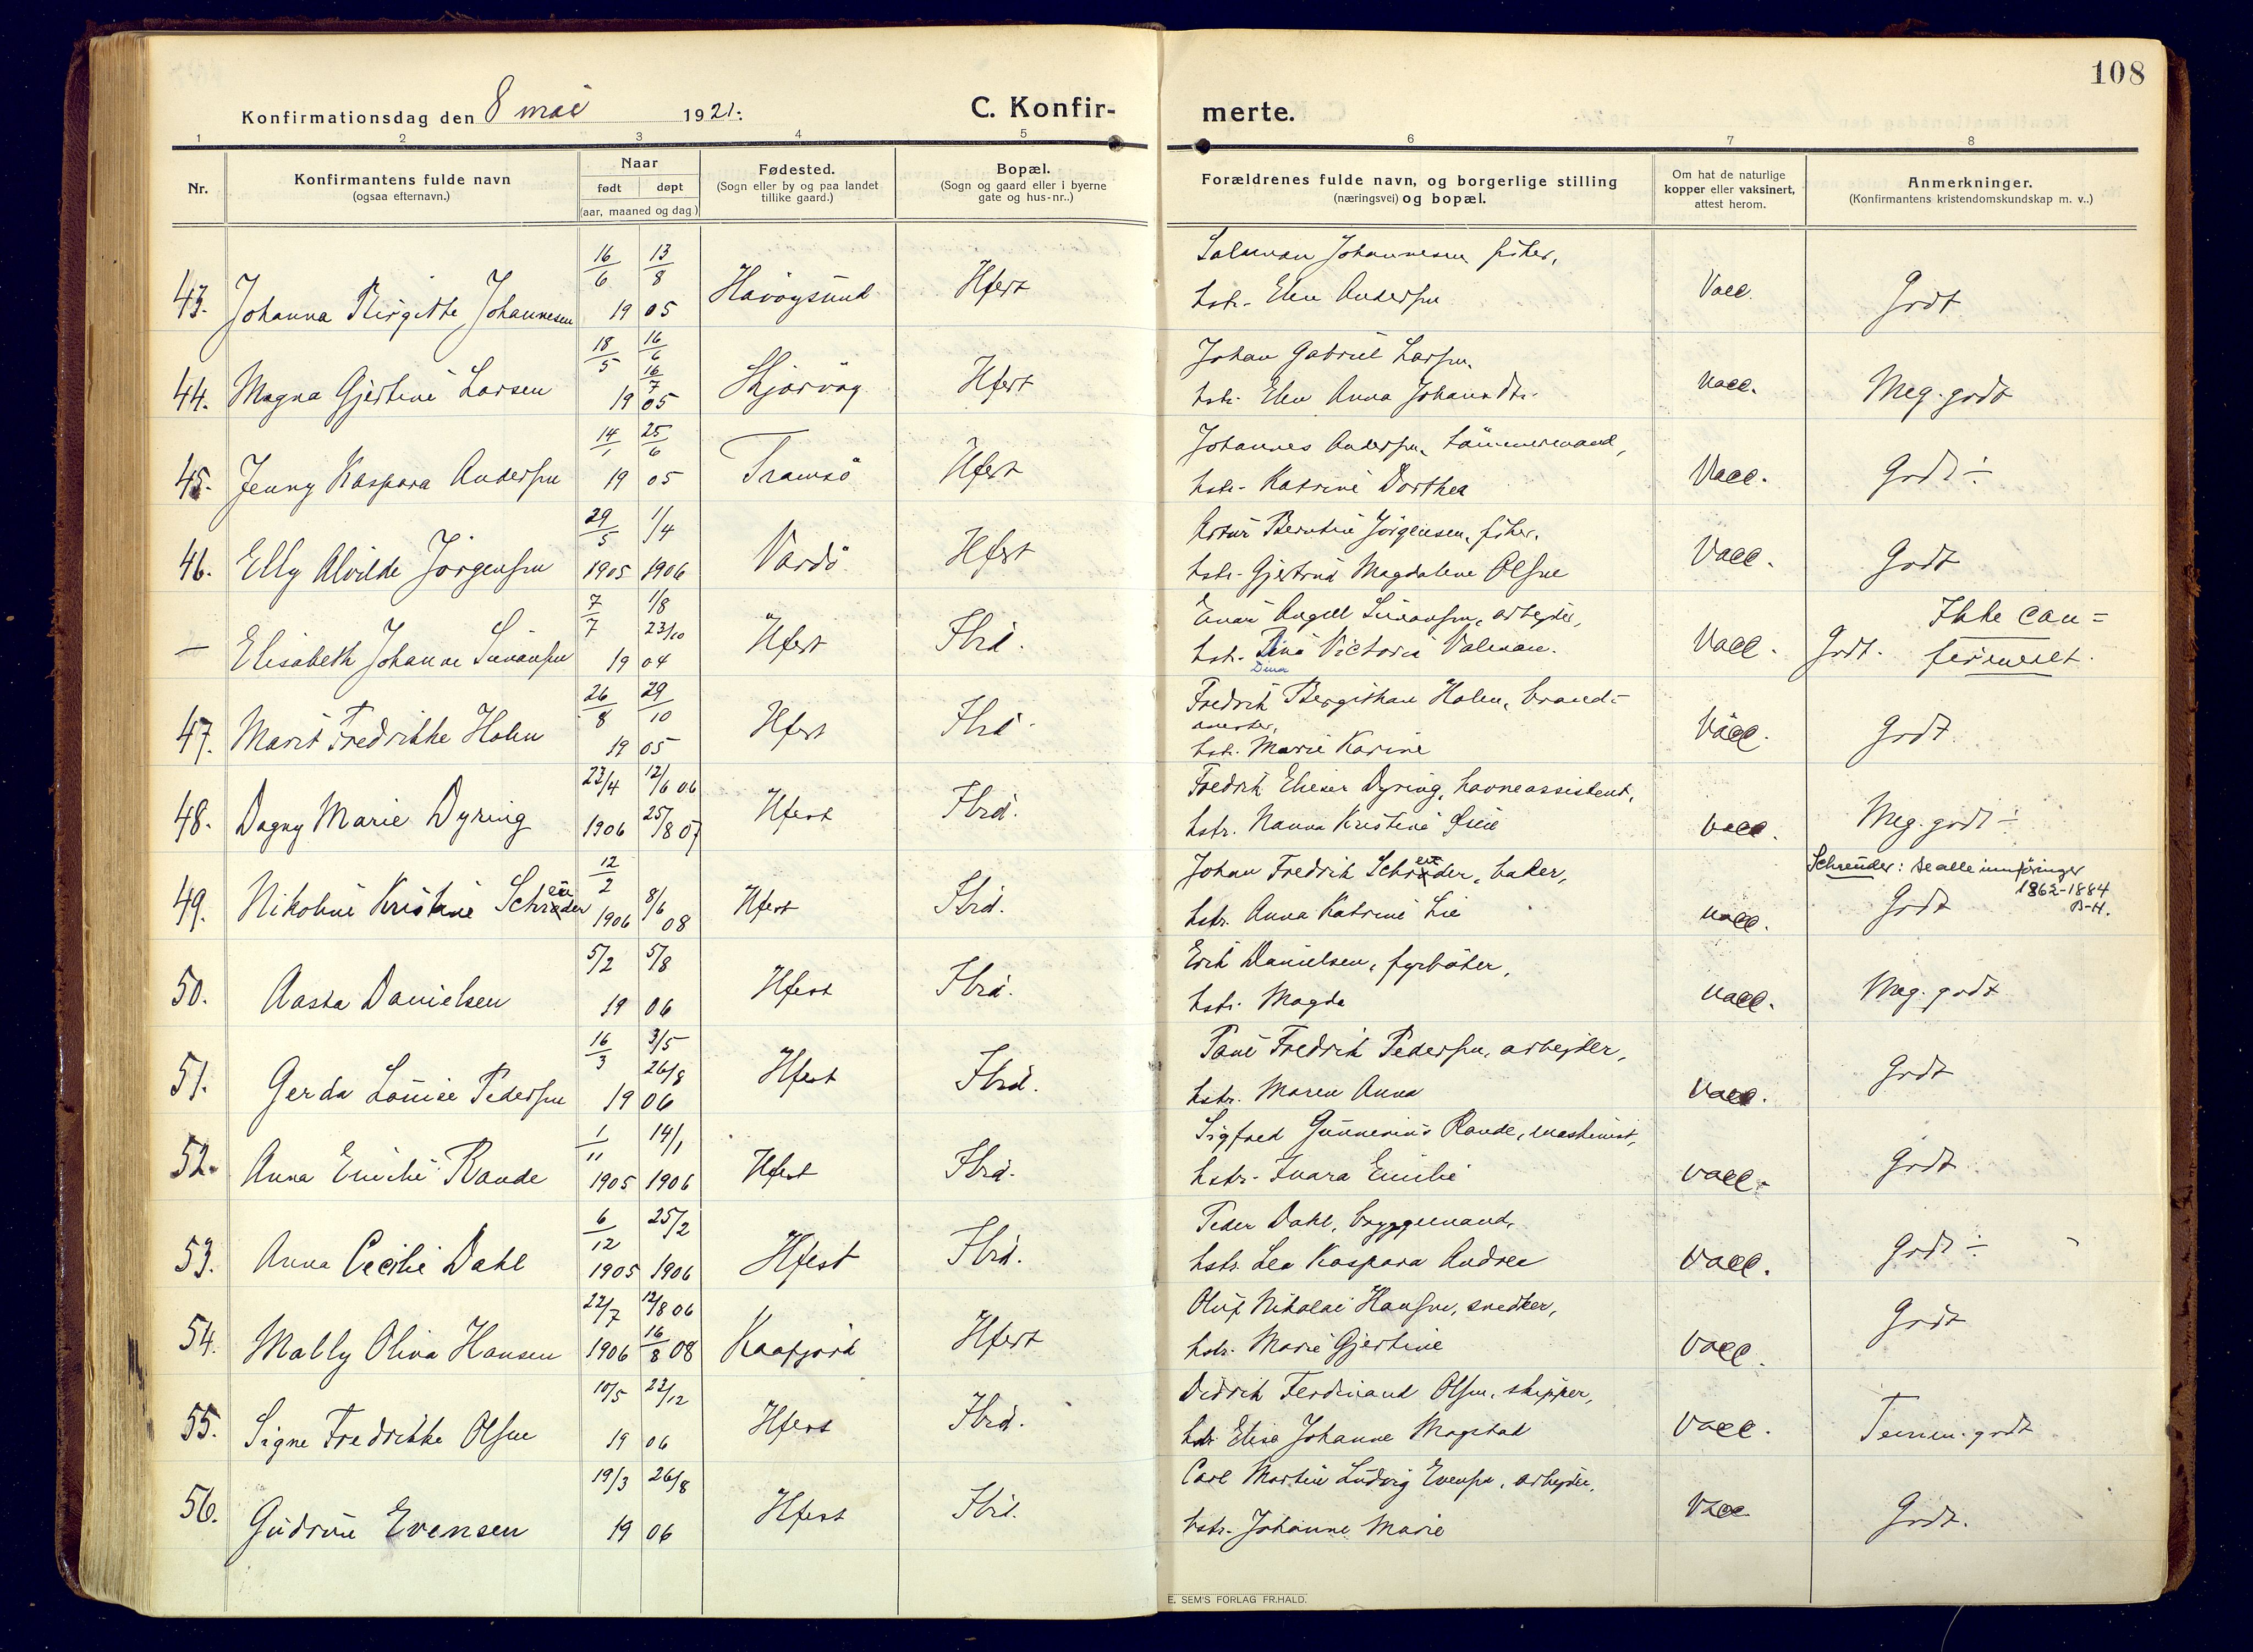 108
Konfirmationsdag den 8 mai 1921.
C. Konfirmerte.
1 2 3 4 5 6 7 8
Nr.
Konfirmantens fulde navn
(ogsaa efternavn.)
Naar
født døpt
(aar, maaned og dag)
Fødested.
(Sogn eller by og paa landet
tillike gaard.)
Bopæl.
(Sogn og gaard eller i byerne
gate og hus-nr..)
Forældrenes fulde navn, og borgerlige stilling
(næringsvei) og bopæl.
Om hat de naturlige
kopper eller vaksinert,
attest herom.
Anmerkninger.
(Konfirmantens kristendomskundskap m. v..)
16/6 13/8 Johannesen fisker,
43. Johanna Birgitte Johannesen 19 05 Havøysund Hfest hstr. Elen Andersen Vacc. Godt
18/5 16/6 16/7 Johan Gabriel Larsen,
44. Magna Gjertine Larsen 19 05 Skjærvøy Hfest hstr. Elen Anna Johansdtr. Vacc. Meg. godt
14/1 25/6 Johannes Andersen, tømmermand,
45. Jenny Kaspara Andersen 19 05 Tromsø Hfest hstr. Katrine Dorthea Vacc. Godt ÷
29/5 1/4 Artur Berntin Jørgensen, fisker,
46. Elly Alvilde Jørgensen 1905 1906 Vardø Hfest hstr. Gjertrud Magdalene Olsen Vacc. Godt
7/7 1/8 23/10 Einar Angell Simonsen, arbejder,
— Elisabeth Johanne Simonsen 19 04 Hfest Ibid. hstr. Dina Victoria Vacc. Godt. Ikke con=
Dina firmert.
26/8 29/10 Fredrik Bergithon Holm, brand-
mester,
47. Marit Fredrikke Holm 19 05 Hfest Ibid. hstr. Marie Karine Vacc. Godt
23/4 12/6 06 Fredrik Elieser Dyring, havneassistent,
48. Dagny Marie Dyring 1906 25/8 07 Hfest Ibid. hstr. Nanna Kristine Vacc. Meg. godt ÷
12/2 Johan Fredrik Schreuder, baker, Schreuder: se alle innføringer
49. Nikoline Kristine Schreuder 1906 8/6 08 Hfest Ibid. hstr. Anna Katrine Lie Vacc. Godt 1862-1884
B-H.
5/2 5/8 Erik Danielsen, fyrbøter,
50. Aasta Danielsen 19 06 Hfest Ibid. hstr. Magda Vacc. Meg. godt
16/3 3/5 26/8 Paul Fredrik Pedersen, arbejder,
51. Gerda Louise Pedersen 19 06 Hfest Ibid. hstr. Maren Anna Vacc. Godt
1/11 14/1 Sigfred Gunnerius Rande, maskinist,
52. Anna Emilie Rande 1905 1906 Hfest Ibid. hstr. Ivara Emilie Vacc. Godt
6/12 25/2 Peder Dahl, bryggemand,
53. Anna Cecilie Dahl 1905 1906 Hfest Ibid. hstr. Lea Kaspara Andrea Vacc. Godt ÷
22/7 12/8 06 Oluf Nikolai Hansen, snedker,
54. Mally Oliva Hansen 1906 16/8 08 Kaafjord Hfest hstr. Marie Gjertine Vacc. Godt
10/5 22/12 Didrik Ferdinand Olsen, skipper,
55. Signe Fredrikke Olsen 19 06 Hfest Ibid. hstr. Elise Johanne Mogstad Vacc. Temm. godt
19/3 26/8 Carl Martin Ludvig Evensen, arbejder,
56. Gudrun Evensen 19 06 Hfest Ibid. hstr. Johanne Marie Vacc. Godt.
E. SEM'S FORLAG FR.HALD.